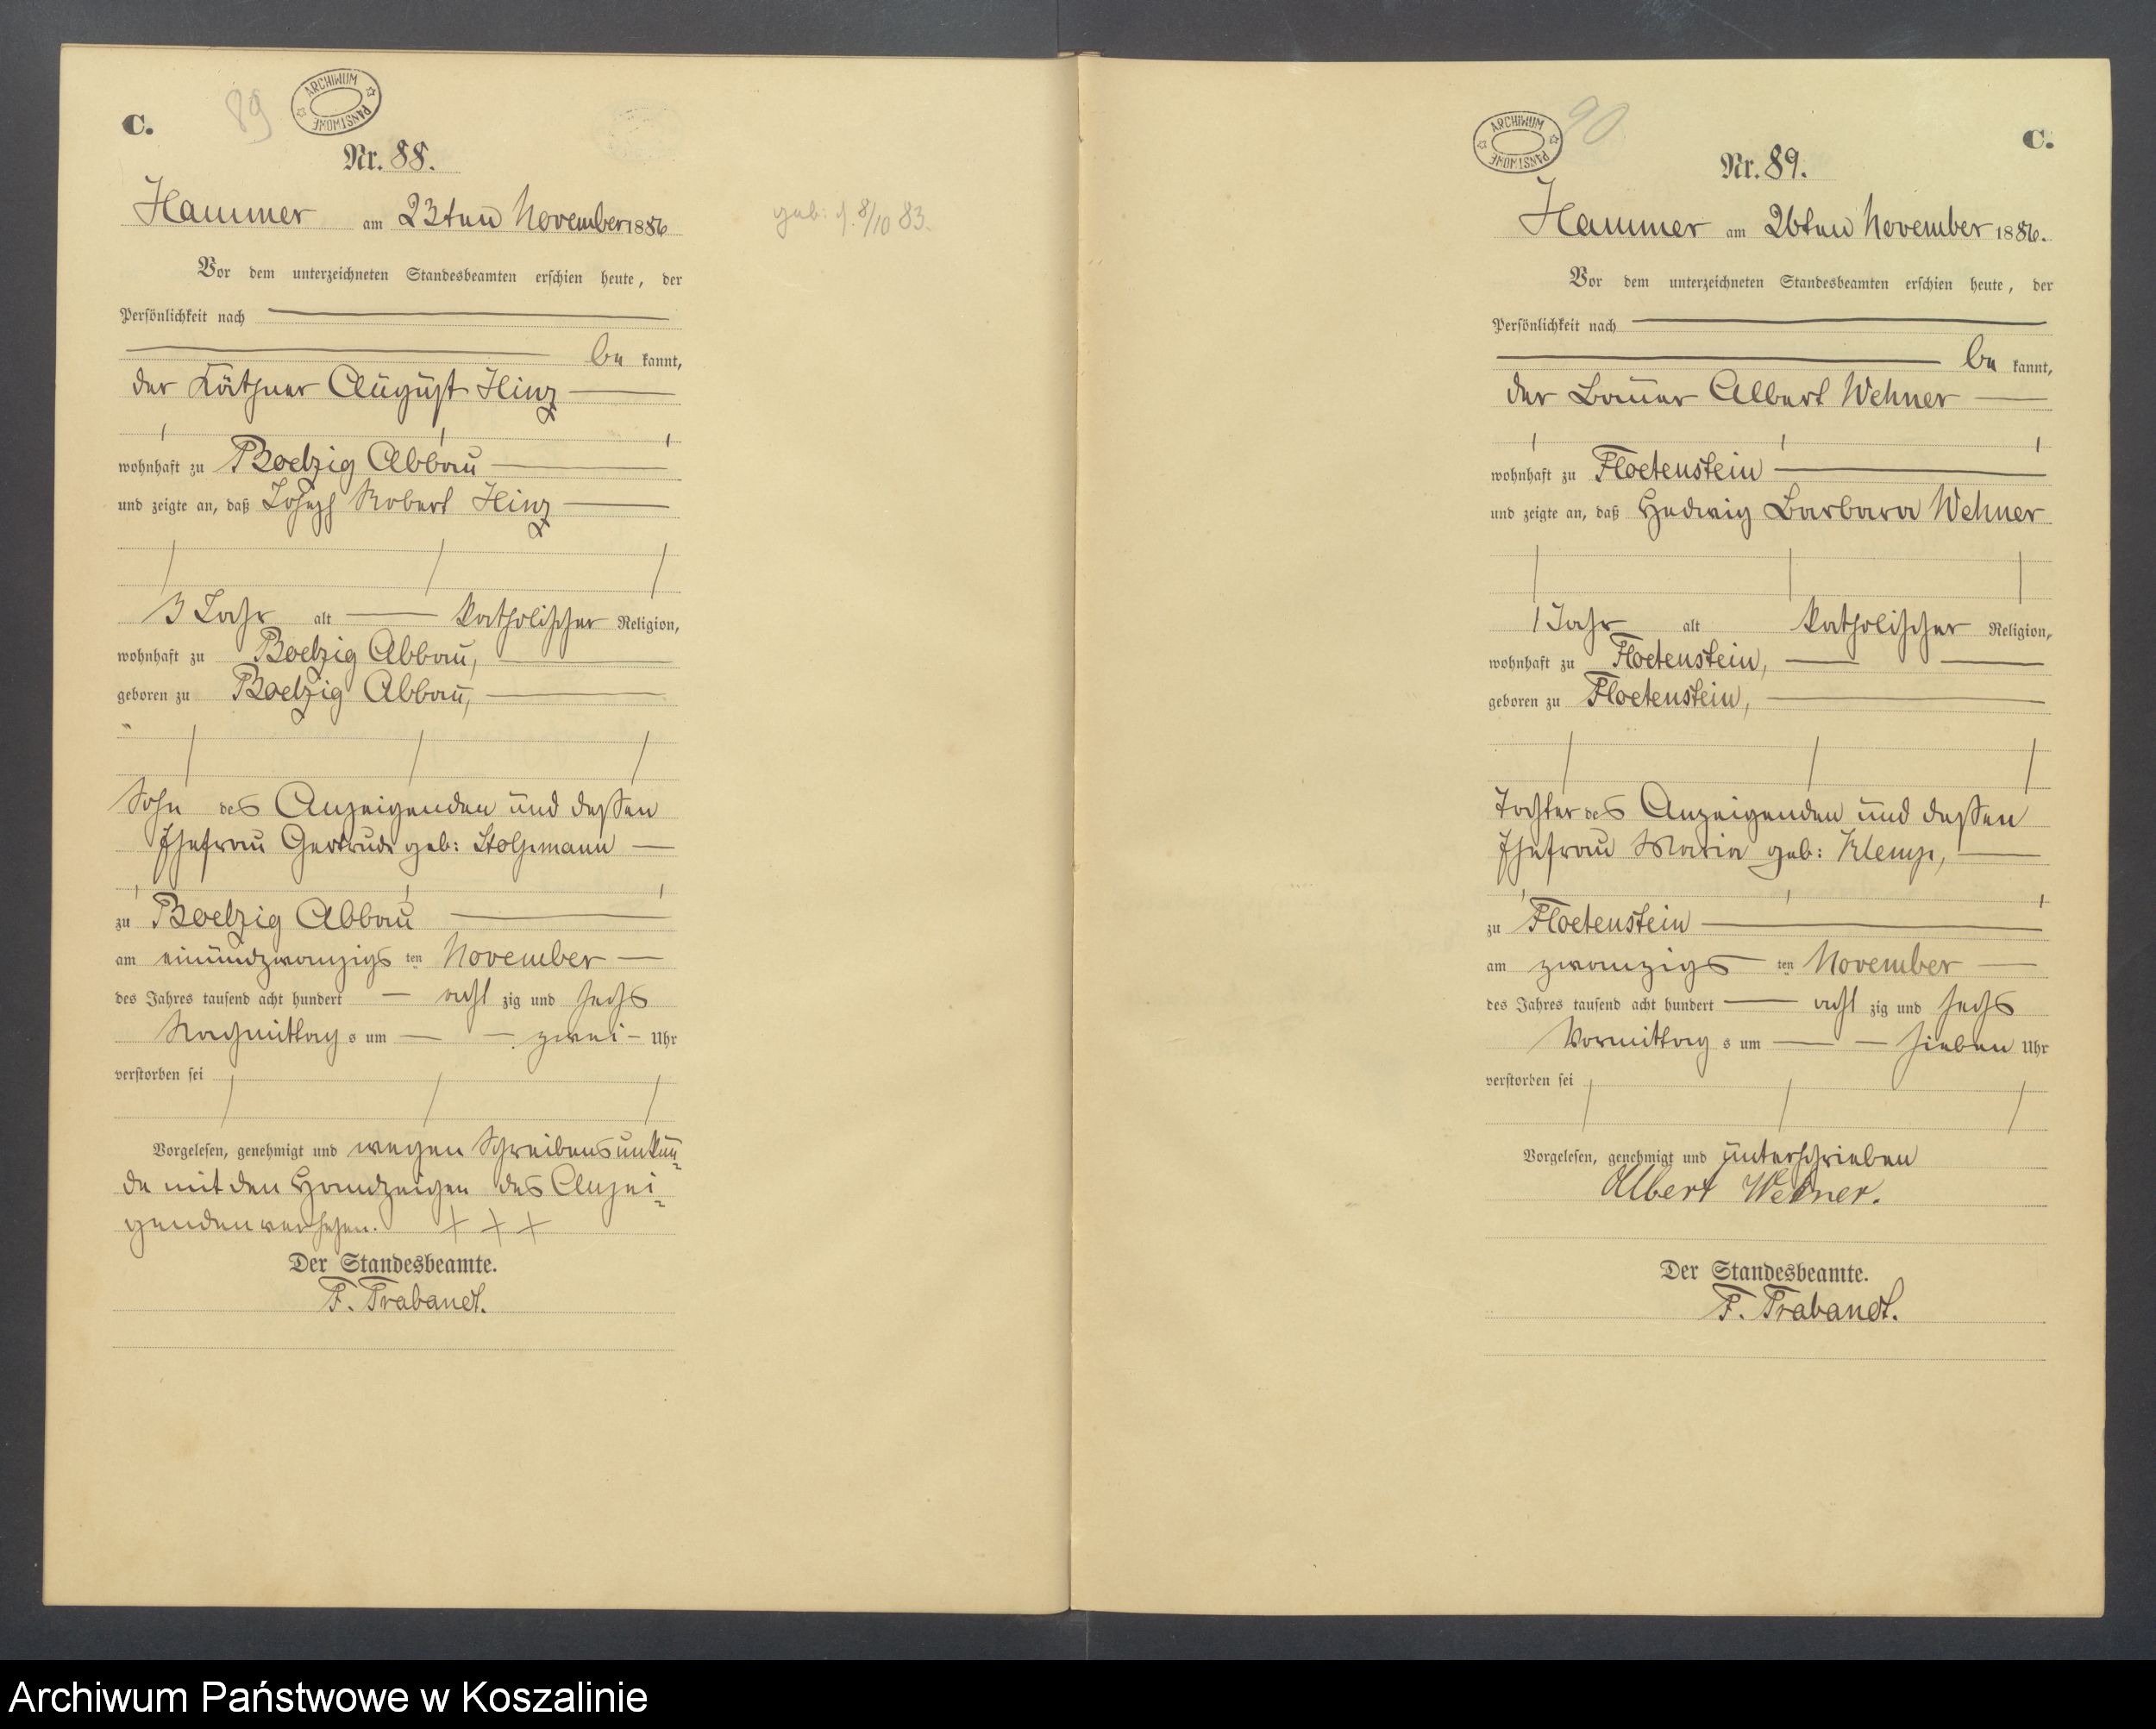 C.
89
ARCHIWUM PAŃSTWOWE
Nr. 88.
Hammer am 23ten November 1886
geb: 8/10 83.
Vor dem unterzeichneten Standesbeamten erschien heute, der
Persönlichkeit nach
be kannt,
der Käthner August Hinz
wohnhaft zu Boelzig Abbau
und zeigte an, daß Joseph Robert Hinz
3 Jahr alt katholischer Religion,
wohnhaft zu Boelzig Abbau,
geboren zu Boelzig Abbau,
Sohn des Anzeigenden und dessen
Ehefrau Gertrude geb: Stolpmann
zu Boelzig Abbau
am einundzwanzigs ten November
des Jahres tausend acht hundert acht zig und sechs
Nachmittag s um zwei Uhr
verstorben sei
Vorgelesen, genehmigt und wegen Schreibensunkun-
de mit den Handzeigen des Anzei-
genden versehen. + + +
Der Standesbeamte.
F. Trabandt.
90
ARCHIWUM PAŃSTWOWE
C.
Nr. 89.
Hammer am 26ten November 1886.
Vor dem unterzeichneten Standesbeamten erschien heute, der
Persönlichkeit nach
be kannt,
der Bauer Albert Wehner
wohnhaft zu Floetenstein
und zeigte an, daß Hedwig Barbara Wehner
1 Jahr alt katholischer Religion,
wohnhaft zu Floetenstein,
geboren zu Floetenstein,
Tochter des Anzeigenden und dessen
Ehefrau Maria geb: Klemp,
zu Floetenstein
am zwanzigs ten November
des Jahres tausend acht hundert acht zig und sechs
Vormittag s um sieben Uhr
verstorben sei
Vorgelesen, genehmigt und unterschrieben
Albert Wehner.
Der Standesbeamte.
F. Trabandt.
Archiwum Państwowe w Koszalinie